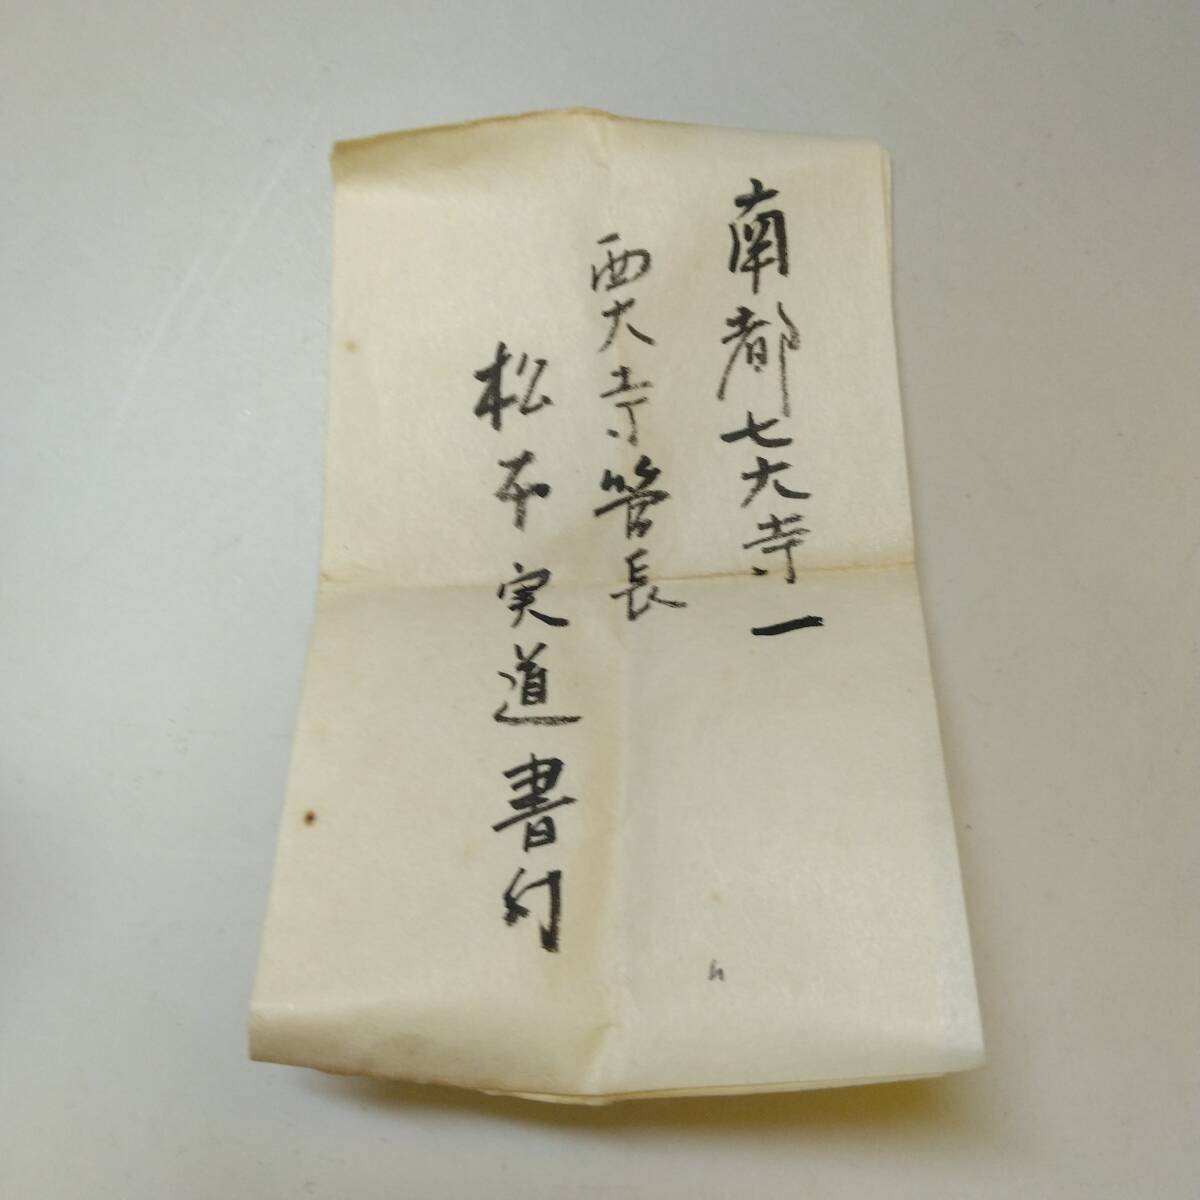 南都七大寺一
西大寺管長
松本実道書付